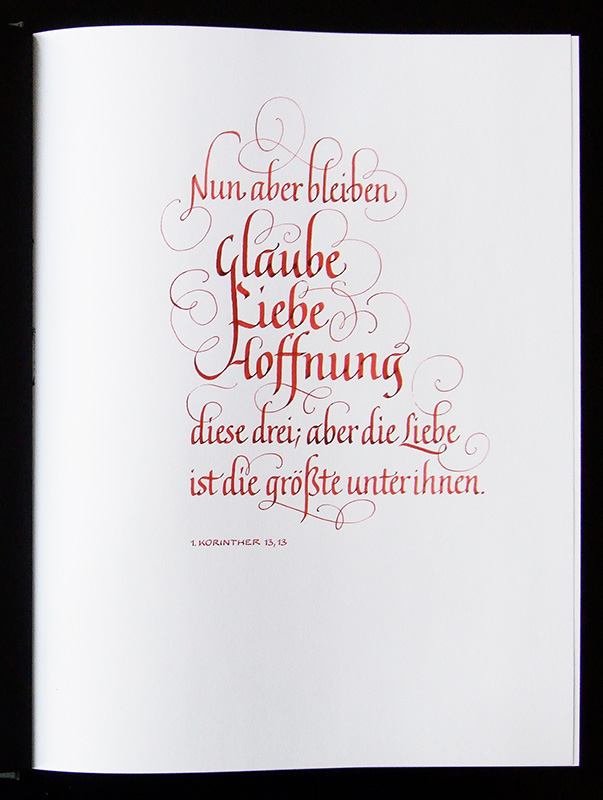 Nun aber bleiben
Glaube
Liebe
Hoffnung
diese drei; aber die Liebe
ist die größte unter ihnen.
1. KORINTHER 13,13